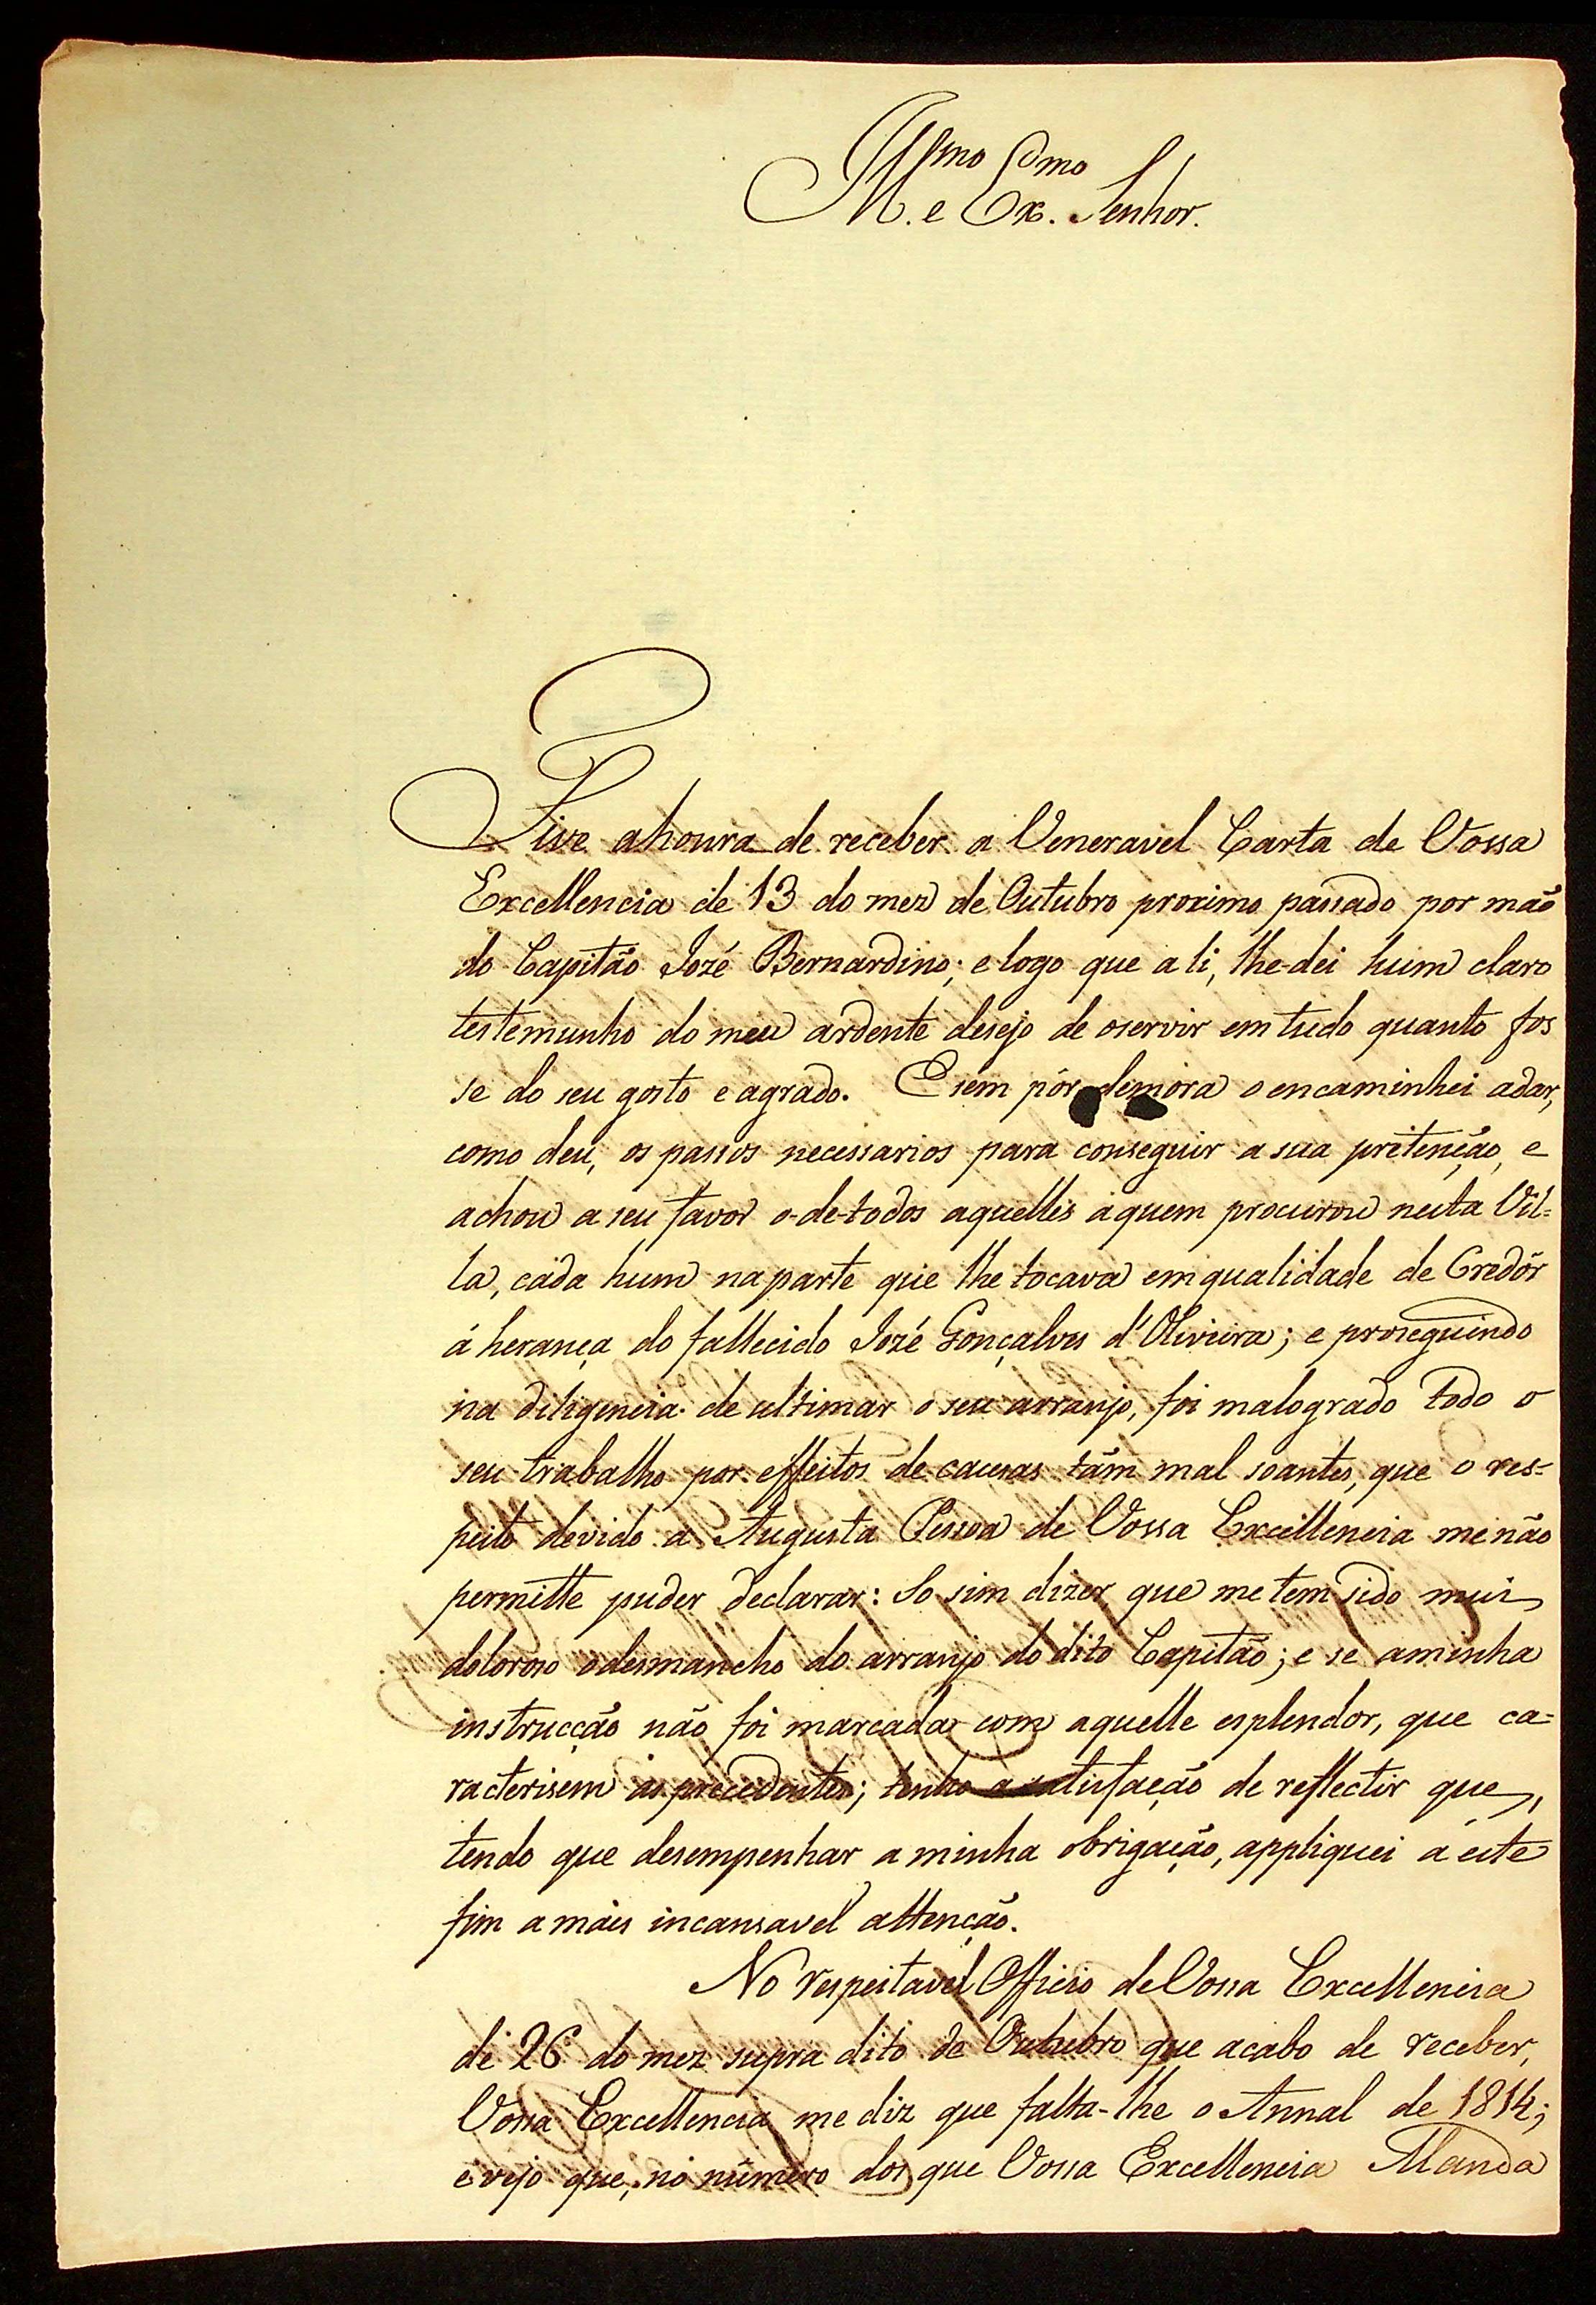 Ill.mo e Ex.mo Senhor.
Tive ahonra de receber a Veneravel Carta de Vossa
Excellencia de 13 do mez de Outubro proximo passado por mão
do Capitão Jozé Bernardino; e logo que a li, lhe-dei hum claro
testemunho do meu ardente desejo de oservir em tudo quanto fos
se do seu gosto e agrado. E sem pôr demora o encaminhei adar,
como deu, os passos necessarios para conseguir a sua pritenção, e
achou a seu favor o-de-todos aquelles aquem procurou nesta Vil=
la, cada hum na parte que lhe tocava em qualidade de Credôr
á herança do fallecido Jozé Gonçalves d'Oliveira; e proseguindo
na diligencia de ultimar o seu arranjo, foi malogrado todo o
seu trabalho por effeitos de causas tãm mal soantes, que o res=
peito devido a Augusta Pessoa de Vossa Excellencia me não
permitte puder declarar: So sim dizer que me tem sido mui
doloroso odesmancho do arranjo do dito Capitão; e se aminha
instrucção não foi marcada com aquelle esplendor, que ca=
racterisem as precedentes; tenho a satisfação de reflectir que,
tendo que desempenhar a minha obrigação, appliquei a este
fim a mais incansavel attenção.
No respeitavel Officio de Vossa Excellencia
de 26 do mez supra dito de Outubro que acabo de receber,
Vossa Excellencia me diz que falta-lhe o Annal de 1814;
e vejo que, no número dos que Vossa Excellencia Manda